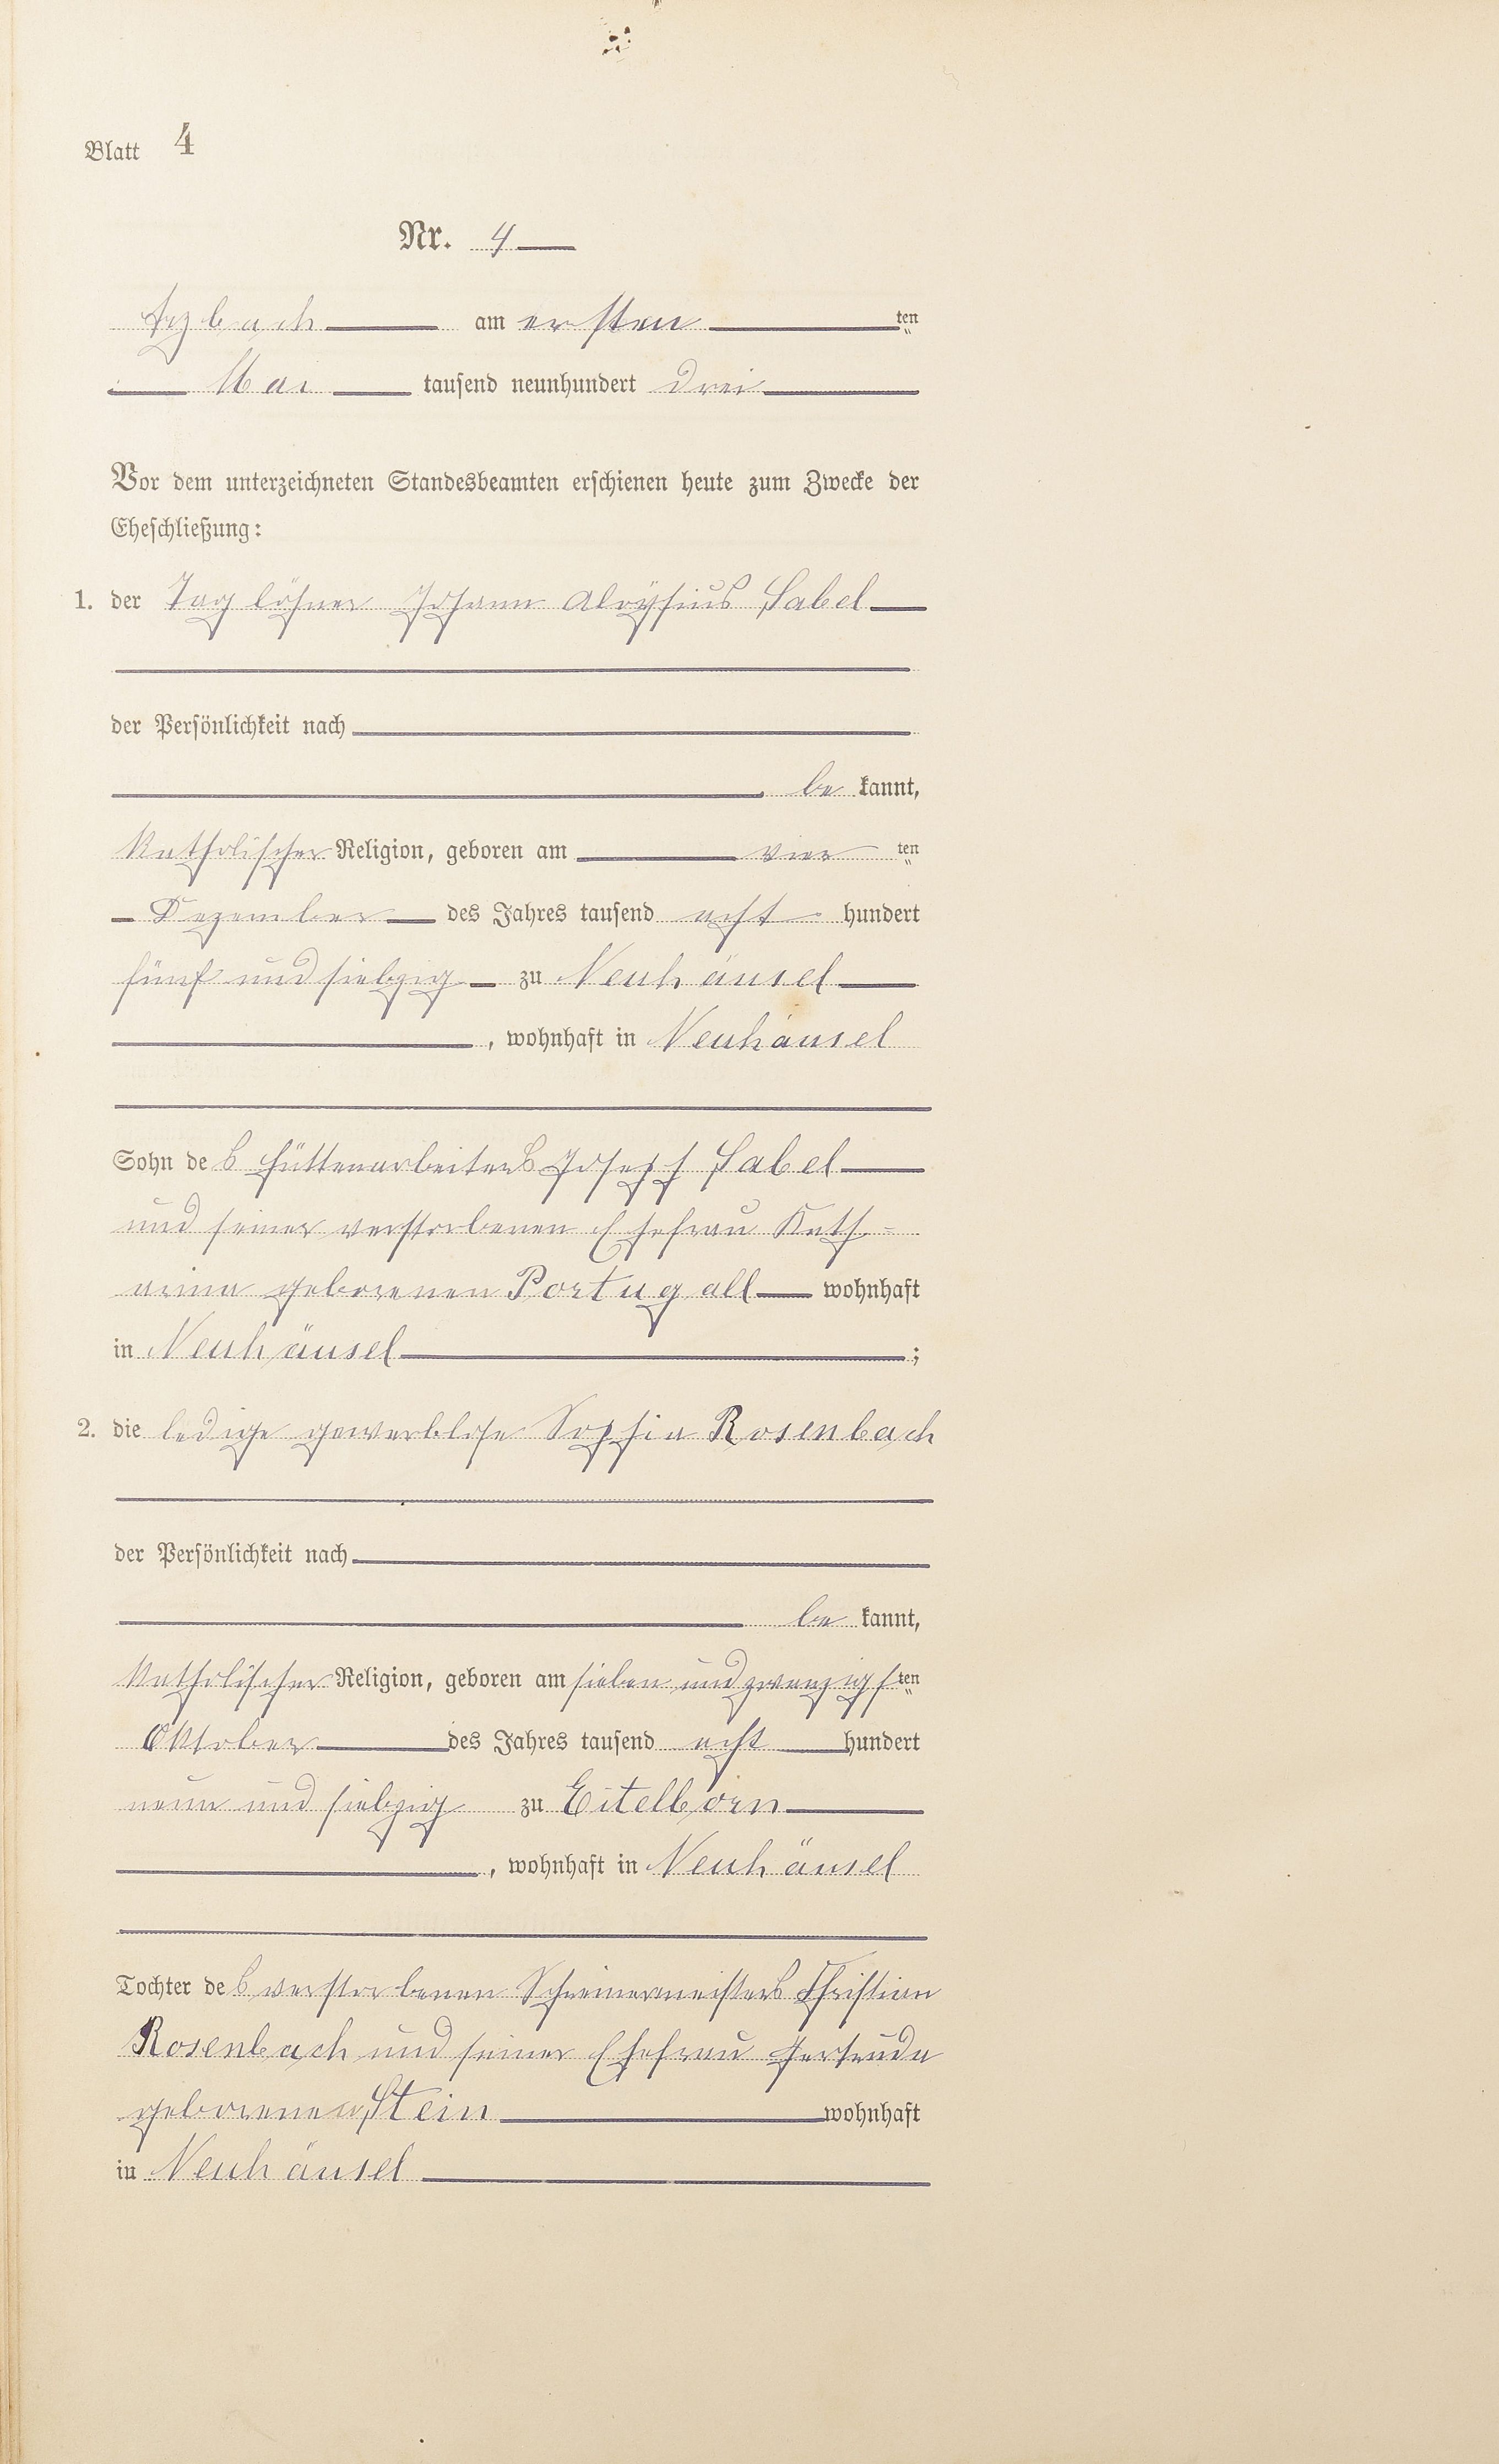 Blatt 4
Nr. 4
Arzbach am ersten ten
Mai tausend neunhundert drei
Vor dem unterzeichneten Standesbeamten erschienen heute zum Zwecke der
Eheschließung:
1. der Taglöhner Johann Aloysius Sabel
der Persönlichkeit nach
be kannt,
katholischer Religion, geboren am vier ten
Dezember des Jahres tausend acht hundert
fünf und siebzig zu Neuhäusel
, wohnhaft in Neuhäusel
Sohn des Hüttenarbeiters Joseph Sabel
und seiner verstorbenen Ehefrau Kath-
arina geborenen Portugall wohnhaft
in Neuhäusel ;
2. die ledige gewerblose Sophia Rosenbach
der Persönlichkeit nach
be kannt,
katholischer Religion, geboren am sieben und zwanzigsten
Oktober des Jahres tausend acht hundert
neun und siebzig zu Eitelborn
, wohnhaft in Neuhäusel
Tochter des verstorbenen Schreinermeisters Christian
Rosenbach und seiner Ehefrau Gertruda
geborenen Stein wohnhaft
in Neuhäusel